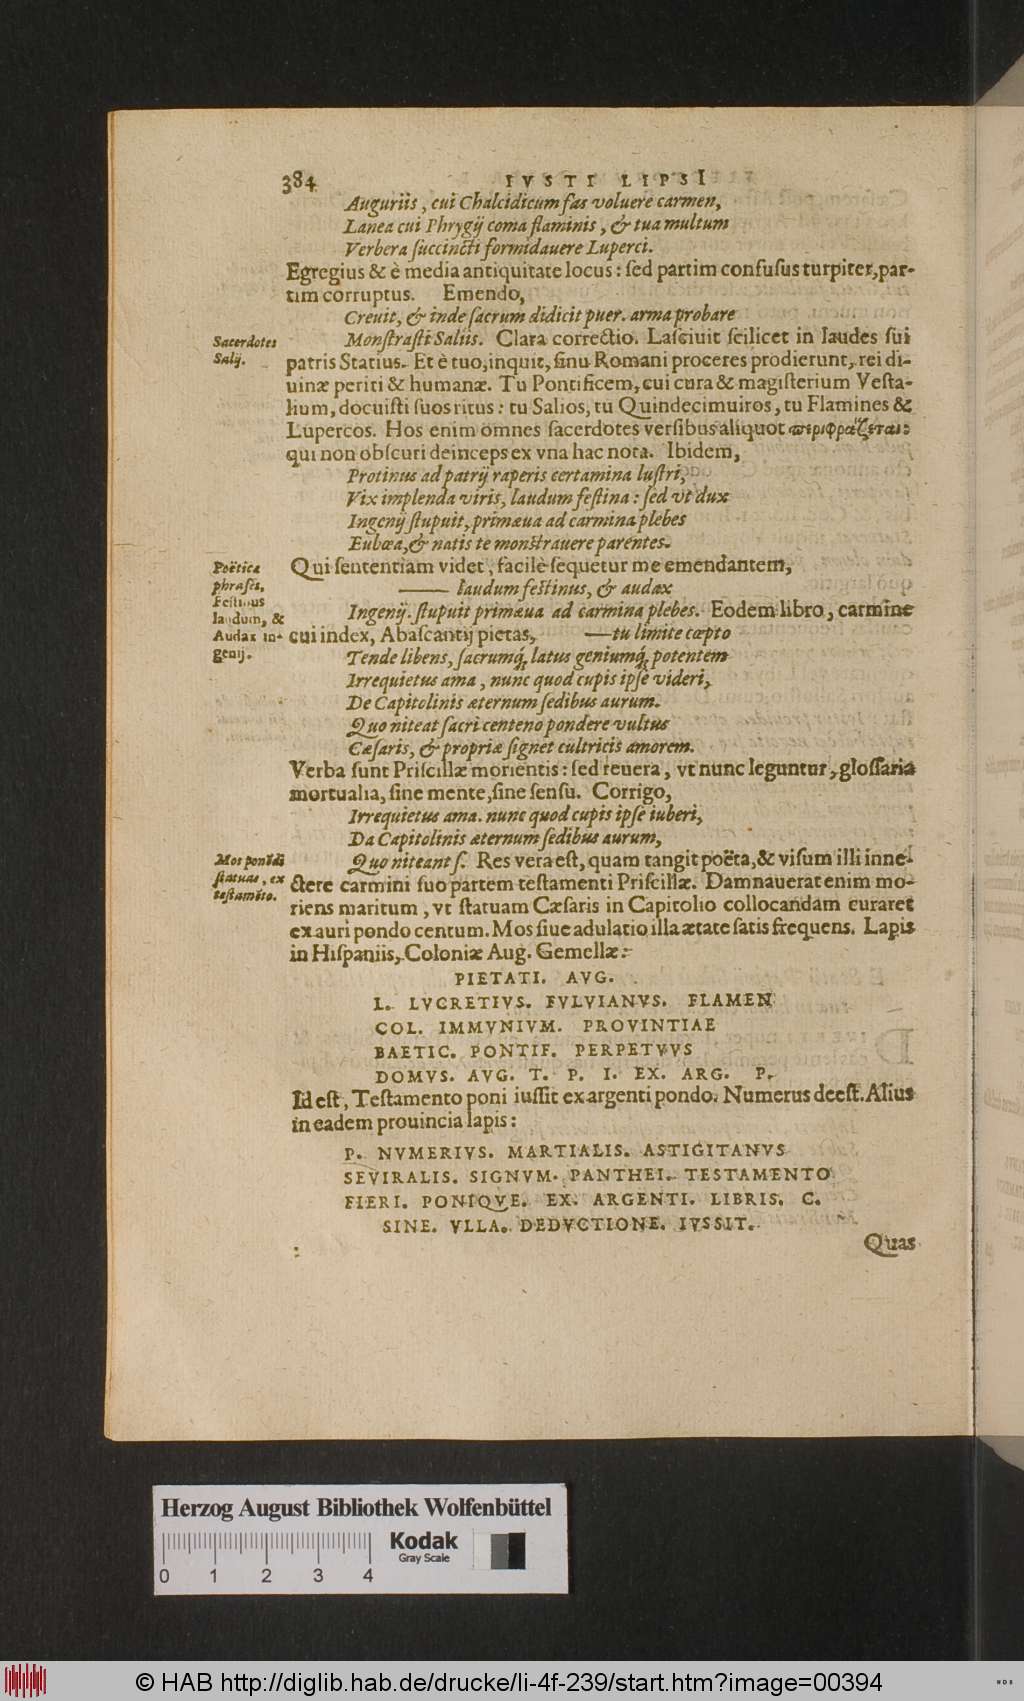 384 IVSTI LIPSI
Auguriis, cui Chalcidicum fas voluere carmen,
Lanea cui Phrygij coma flaminis, & tua multum
Verbera succincti formidauere Luperci.
Egregius & è media antiquitate locus: sed partim confusus turpiter, par-
tim corruptus. Emendo,
Creuit, & inde sacrum didicit puer. arma probare
Sacerdotes
Salij.
Monstrasti Saliis. Clara correctio. Lasciuit scilicet in laudes sui
patris Statius. Et è tuo, inquit, sinu Romani proceres prodierunt, rei di-
uinæ periti & humanæ. Tu Pontificem, cui cura & magisterium Vesta-
lium, docuisti suos ritus: tu Salios, tu Quindecimuiros, tu Flamines &
Lupercos. Hos enim omnes sacerdotes versibus aliquot περιφράζεται:
qui non obscuri deinceps ex vna hac nota. Ibidem,
Protinus ad patrij raperis certamina lustri,
Vix implenda viris, laudum festina: sed vt dux
Ingenij stupuit, primæua ad carmina plebes
Eubœa, & natis te monstrauere parentes.
Poëtica
phrases,
Festinus
laudum, &
Audax in-
genij.
Qui sententiam videt, facilè sequetur me emendantem,
—— laudum festinus, & audax
Ingenij. stupuit primæua ad carmina plebes. Eodem libro, carmine
cui index, Abascantij pietas, —tu limite cœpto
Tende libens, sacrumq́; latus geniumq́; potentem
Irrequietus ama, nunc quod cupis ipse videri,
De Capitolinis æternum sedibus aurum.
Quo niteat sacri centeno pondere vultus
Cæsaris, & propriæ signet cultricis amorem.
Verba sunt Priscillæ morientis: sed reuera, vt nunc leguntur, glossaria
mortualia, sine mente, sine sensu. Corrigo,
Irrequietus ama. nunc quod cupis ipse iuberi,
Da Capitolinis æternum sedibus aurum,
Mos ponẽdi
statuas, ex
testamẽto.
Quo niteant s. Res vera est, quam tangit poëta, & visum illi inne-
ctere carmini suo partem testamenti Priscillæ. Damnauerat enim mo-
riens maritum, vt statuam Cæsaris in Capitolio collocandam curaret
ex auri pondo centum. Mos siue adulatio illa ætate satis frequens. Lapis
in Hispaniis, Coloniæ Aug. Gemellæ:
PIETATI. AVG.
L. LVCRETIVS. FVLVIANVS. FLAMEN
COL. IMMVNIVM. PROVINTIAE
BAETIC. PONTIF. PERPETVVS
DOMVS. AVG. T. P. I. EX. ARG. P.
Id est, Testamento poni iussit ex argenti pondo. Numerus deest. Alius
in eadem prouincia lapis:
P. NVMERIVS. MARTIALIS. ASTIGITANVS
SEVIRALIS. SIGNVM. PANTHEI. TESTAMENTO
FIERI. PONIQVE. EX. ARGENTI. LIBRIS. C.
SINE. VLLA. DEDVCTIONE. IVSSIT.
Quas
Herzog August Bibliothek Wolfenbüttel
0 1 2 3 4
Kodak
Gray Scale
© HAB http://diglib.hab.de/drucke/li-4f-239/start.htm?image=00394